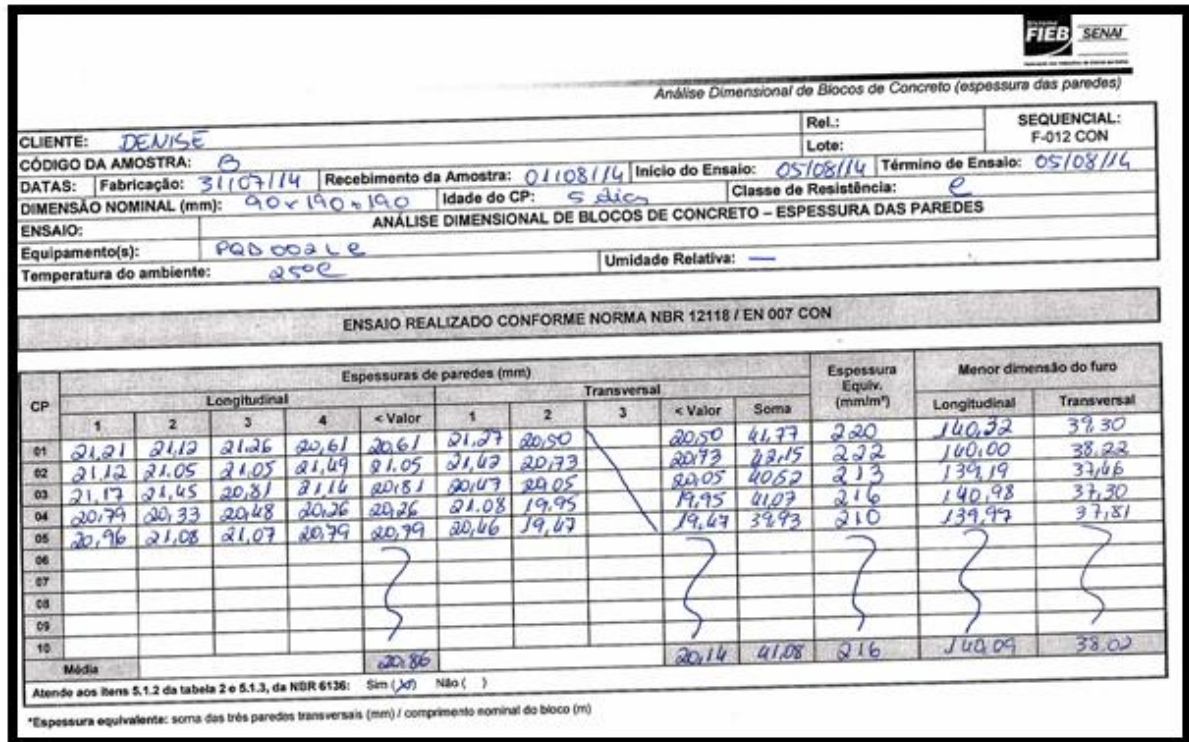 FIEB SENAI
Análise Dimensional de Blocos de Concreto (espessura das paredes)
CLIENTE: DENISE Rel.: SEQUENCIAL:
Lote: F-012 CON
CÓDIGO DA AMOSTRA: B
DATAS: Fabricação: 31/07/14 Recebimento da Amostra: 01/08/14 Início do Ensaio: 05/08/14 Término de Ensaio: 05/08/14
DIMENSÃO NOMINAL (mm): 90 x 190 x 190 Idade do CP: 5 dias Classe de Resistência: C
ENSAIO: ANÁLISE DIMENSIONAL DE BLOCOS DE CONCRETO – ESPESSURA DAS PAREDES
Equipamento(s): PQD 002 LC
Temperatura do ambiente: 25°C Umidade Relativa: —
ENSAIO REALIZADO CONFORME NORMA NBR 12118 / EN 007 CON
CP Espessuras de paredes (mm) Espessura Equiv. (mm/m*) Menor dimensão do furo
Longitudinal Transversal Longitudinal Transversal
1 2 3 4 < Valor 1 2 3 < Valor Soma
01 21,21 21,12 21,26 20,61 20,61 21,27 20,50 20,50 41,77 220 140,32 39,30
02 21,12 21.05 21,05 21,49 21.05 21,42 20,73 20,73 42,15 222 140,00 38,22
03 21,17 21,45 20,81 21,14 20,81 20,47 20,05 20,05 40,52 213 139,19 37,46
04 20,79 20,33 20,48 20,26 20,26 21.08 19,95 19,95 41,03 216 140,98 37,30
05 20,96 21,08 21,07 20,79 20,79 20,46 19,47 19,47 39,93 210 139,97 37,81
06
07
08
09
10
Média 20,86 20,14 41,08 216 140,09 38,02
Atende aos itens 5.1.2 da tabela 2 e 5.1.3, da NBR 6136: Sim (x) Não ( )
*Espessura equivalente: soma das três paredes transversais (mm) / comprimento nominal do bloco (m)